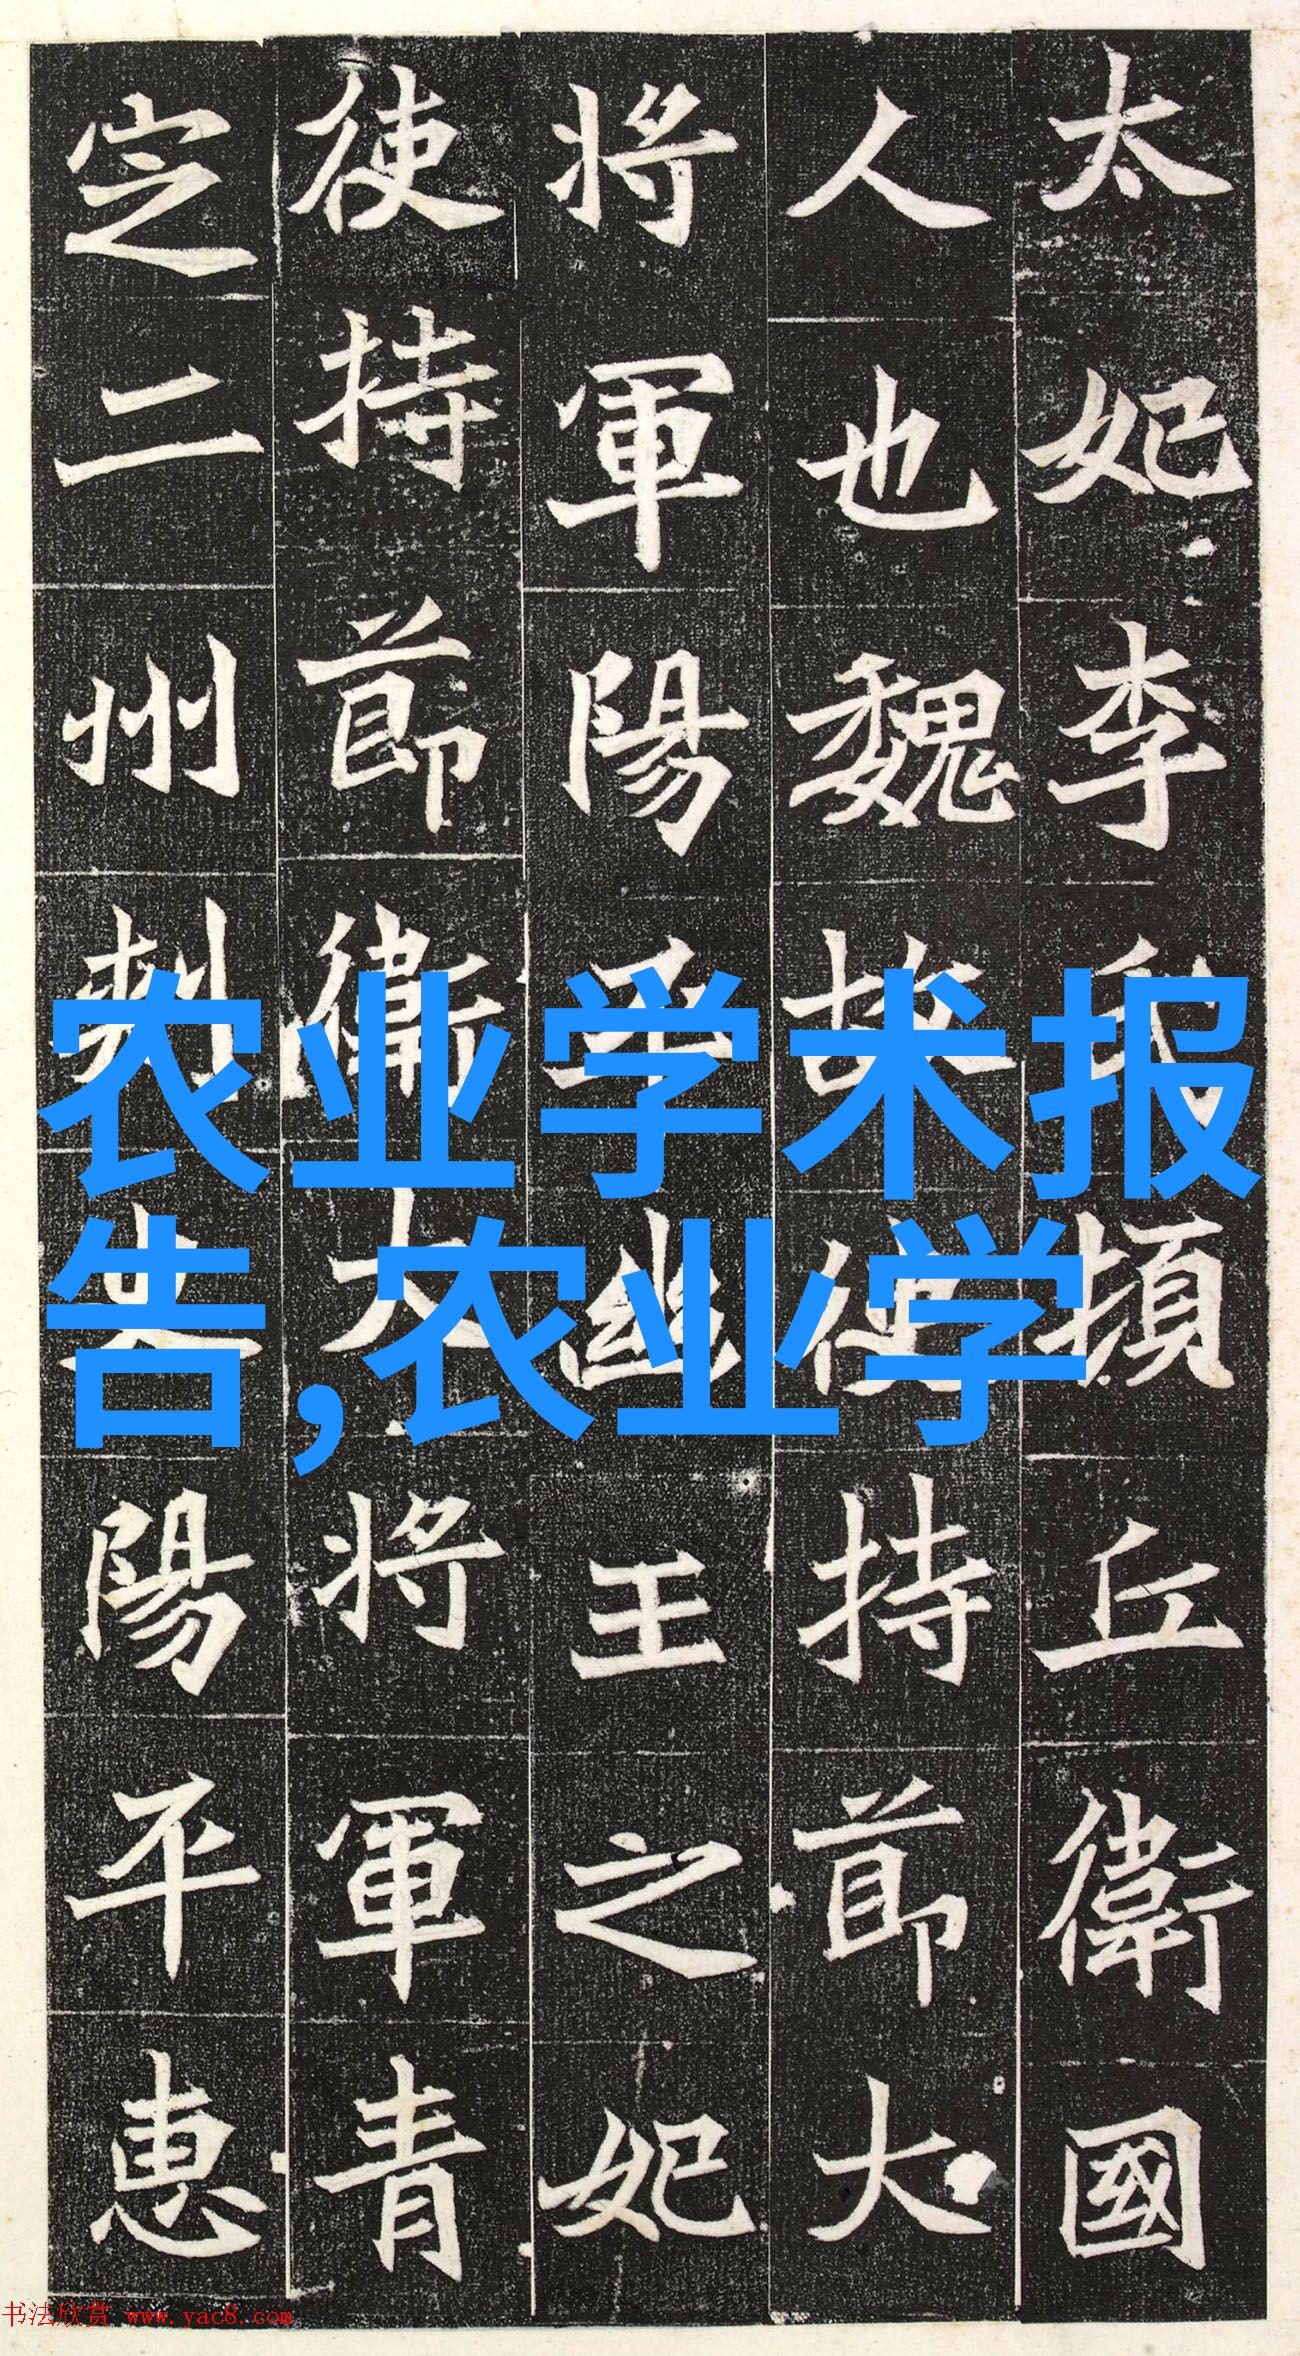 太妃李氏頓丘衛國
人也魏故使持節大
將軍陽平幽王之妃
使持節衛大將軍青
定二州刺史陽平惠
农业学术报
告,农业学
书法欣赏 www.yac8.com